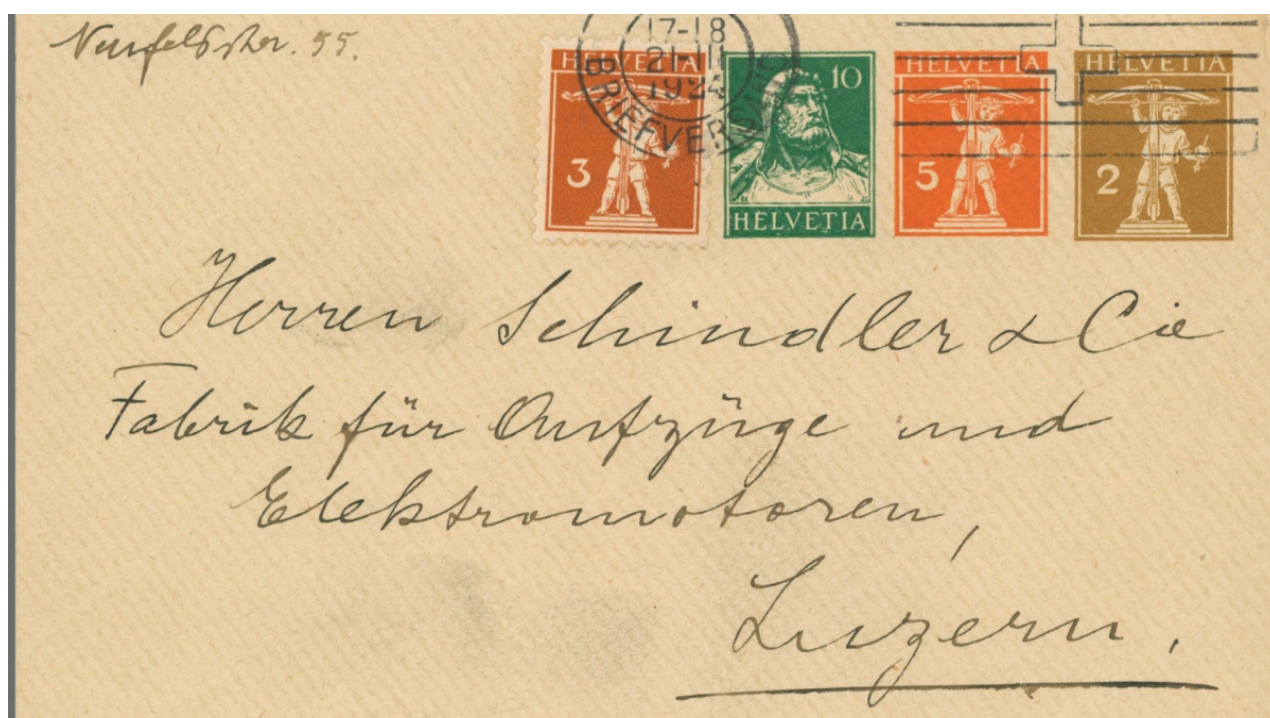 Neufeldstr. 55.
17-18
21-II
1924
BRIEFVERS
HELVETIA
3
10
HELVETIA
HELVETIA
5
HELVETIA
2
Herren Schindler & Cie
Fabrik für Aufzüge und
Elektromotoren,
Luzern.